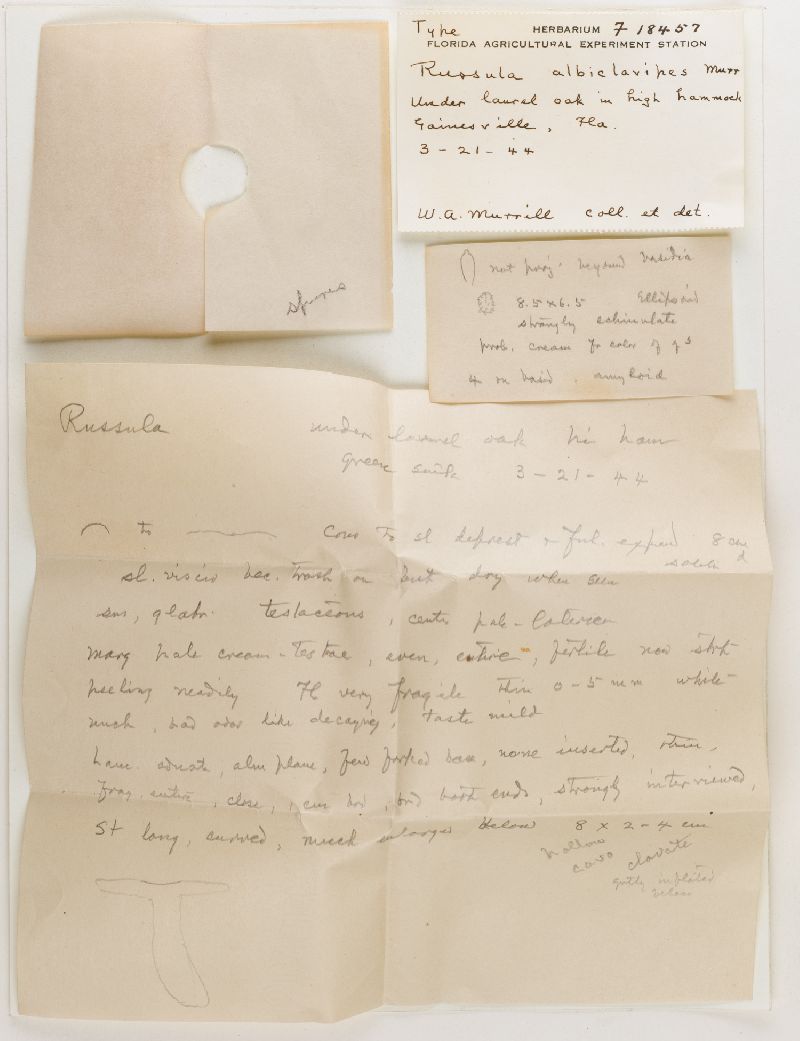 Type HERBARIUM F 18457
FLORIDA AGRICULTURAL EXPERIMENT STATION
Russula albiclavipes Murr
Under laurel oak in high hammock
Gainesville, Fla.
3-21-44
W.A. Murrill coll. et det.
spores
not proj. beyond basidia
8.5 x 6.5 Ellipsoid
strongly echinulate
prob. cream fr color of g s
4 on basid. amyloid
Russula under laurel oak hi ham
3-21-44
to conv to sl deprest expand 8 cm
sl. viscid bec. trash on but dry when seen
glabr. testaceous, center pale-latericeo
marg pale cream-testac, even, entire, fertile non strh
peeling readily Fl very fragile thin 0-5 mm white
unch, bad odor like decaying, taste mild
Lam. adnate, alm plane, few forked base, none inserted, thin,
frag, entire, close, both ends, strongly interveined,
St long, curved, much enlarged below 8 x 2-4 cm
hollow
cavo clavate
gently inflated
below